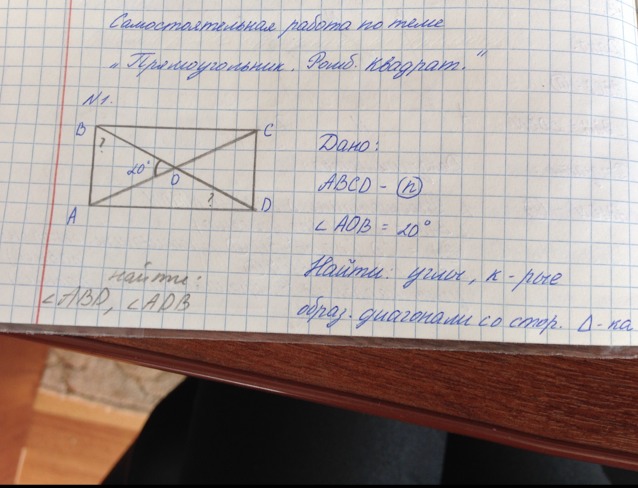 Самостоятельная работа по теме
„Прямоугольник. Ромб. Квадрат."
N1.
B
C
?
20°
O
?
A
D
Дано:
ABCD - п
∠AOB = 20°
Найти: углы, к-рые
образ. диагонали со стор.
найти:
∠ABD, ∠ADB